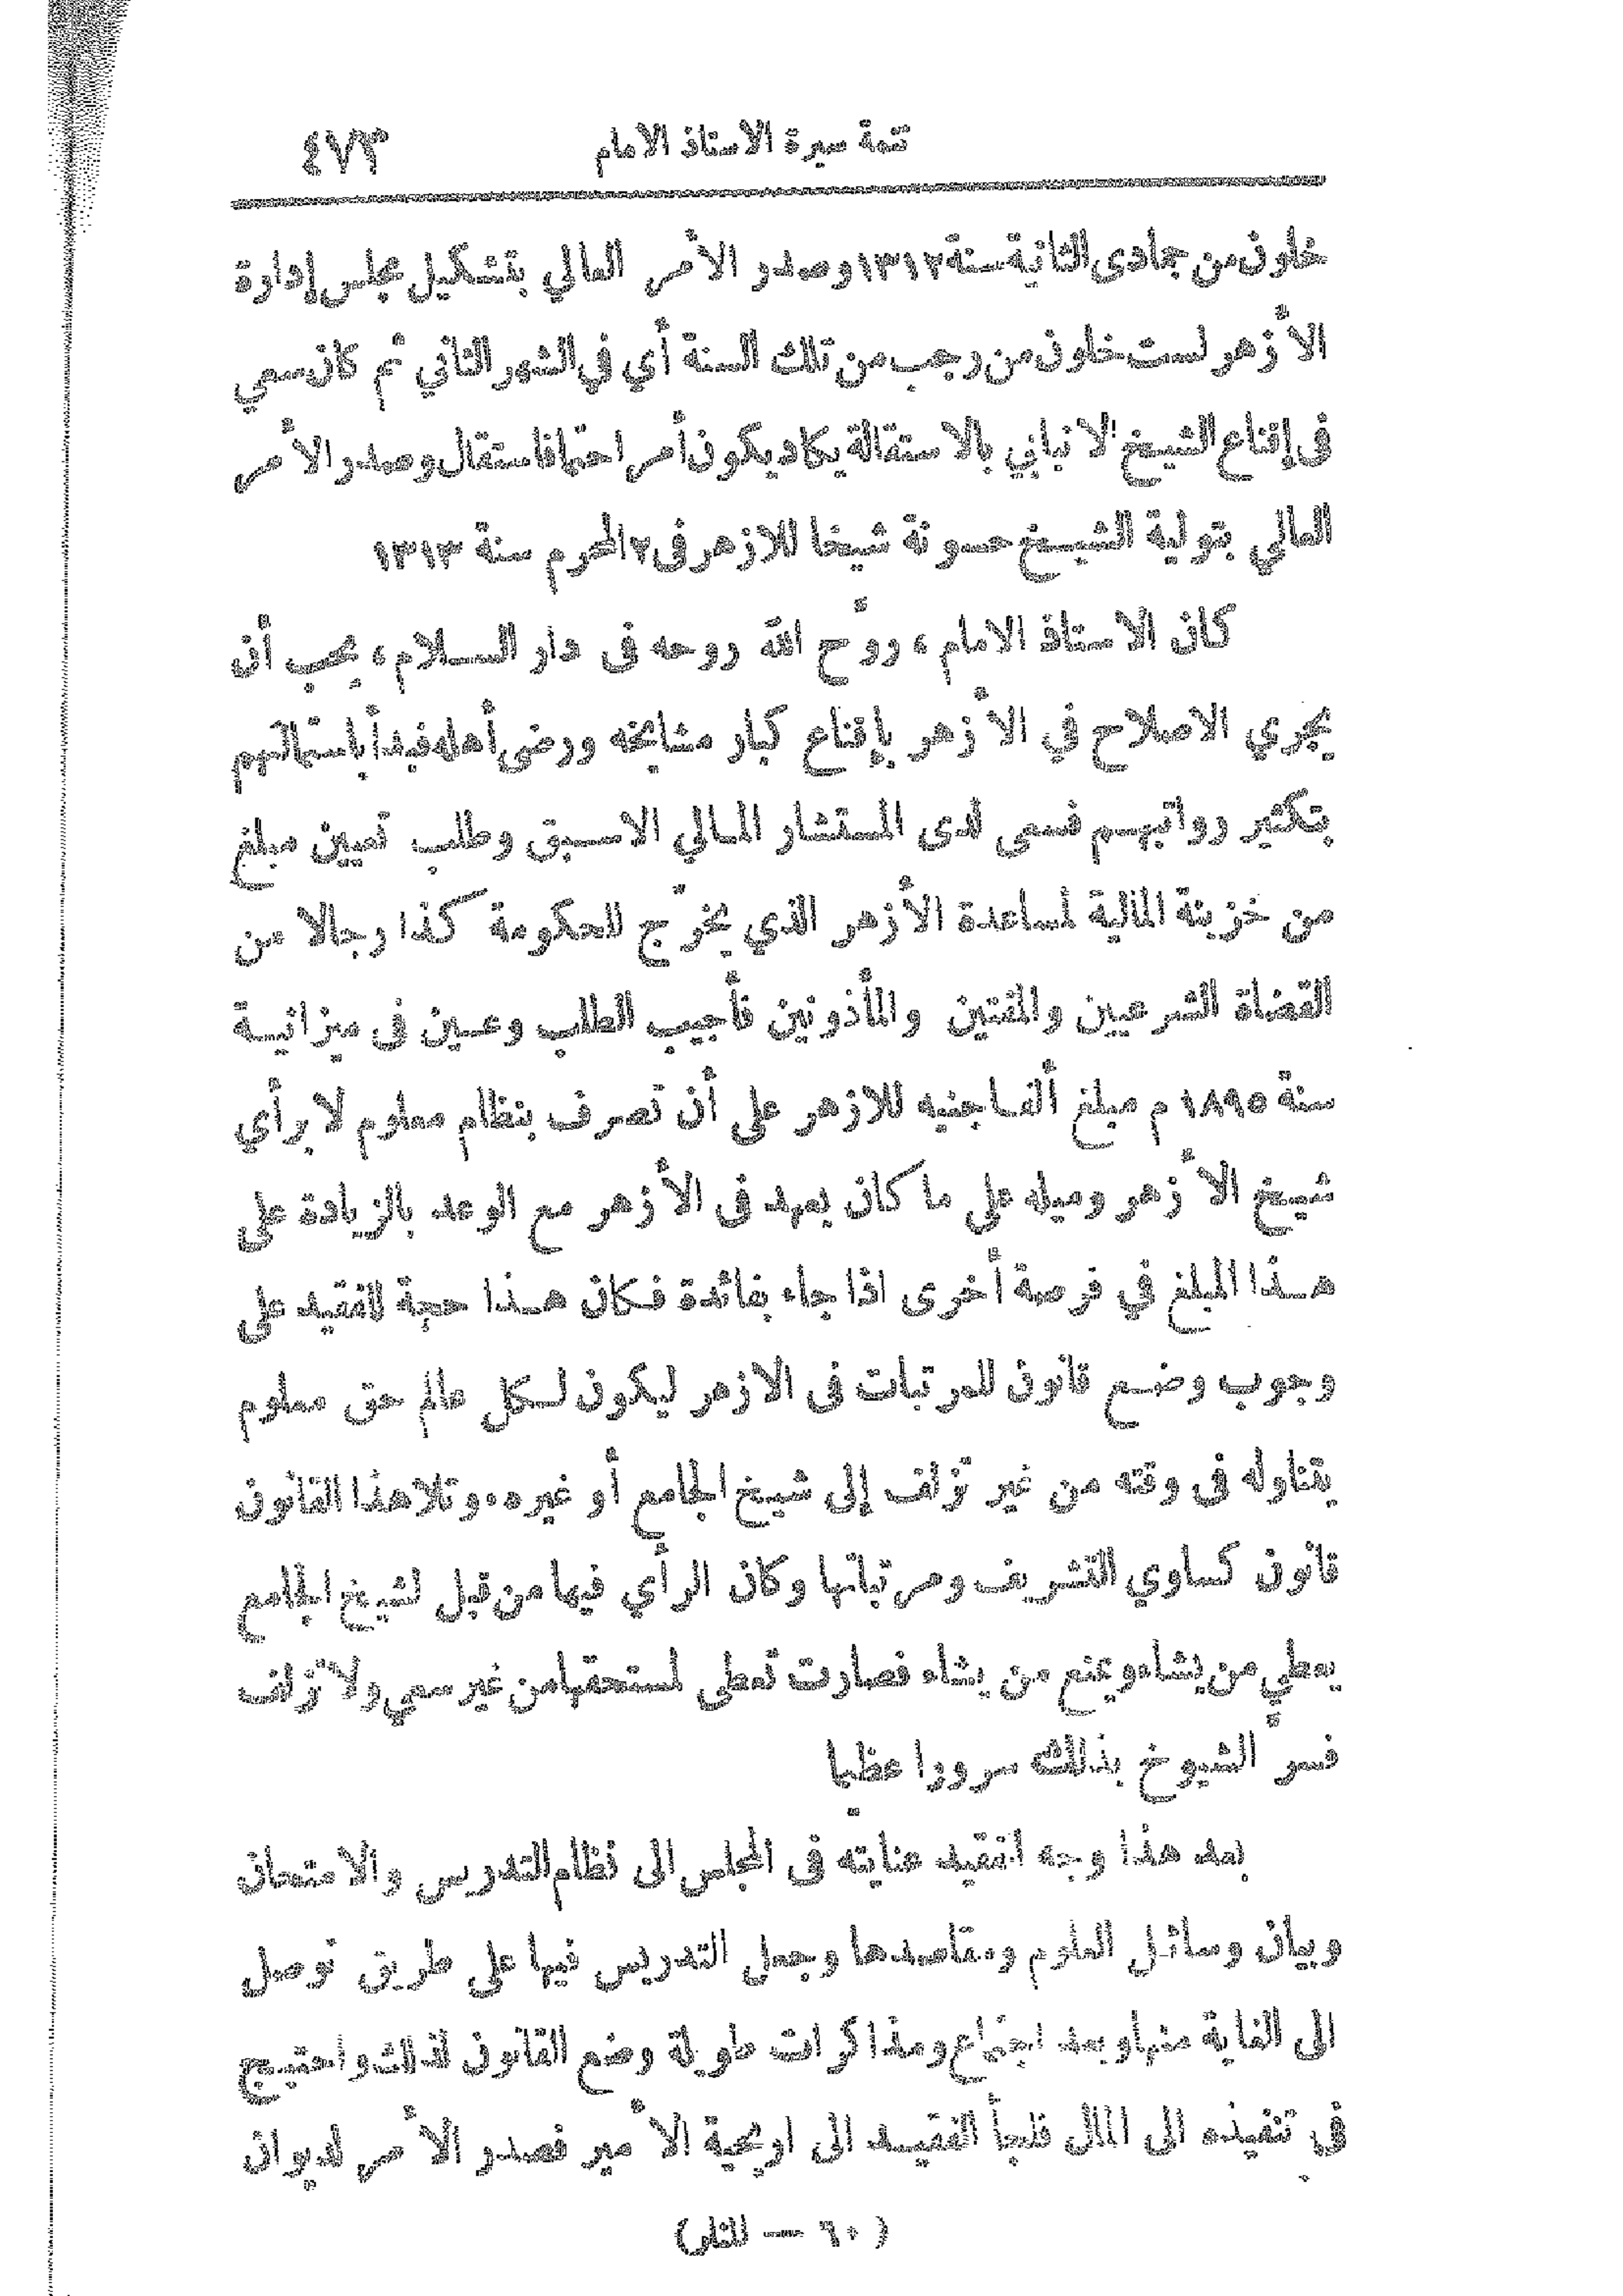 تتمة سيرة الاستاذ الامام ٤٧٣
خلون من جمادى الثانية سنة ١٣١٢ وصدر الأمر العالي بتشكيل مجلس إدارة
الأزهر لست خلون من رجب من تلك السنة أي في الشهر الثاني ثم كان سعي
فى إقناع الشيخ الانبابي بالاستقالة يكاد يكون أمرا حتما فاستقال وصدر الأمر
العالي بتولية الشيخ حسونة شيخا للازهر فى ٢ المحرم سنة ١٣١٣
كان الاستاذ الامام ، روَّح الله روحه فى دار السلام ، يحب أن
يجري الاصلاح في الأزهر بإقناع كبار مشايخه ورضى أهله فبدأ باستمالتهم
بتكثير رواتبهم فسعى لدى المستشار المالي الاسبق وطلب تعيين مبلغ
من خزينة المالية لمساعدة الأزهر الذي يخرّج للحكومة كذا رجالا من
القضاة الشرعيين والمفتين والمأذونين فأجيب الطلب وعين فى ميزانية
سنة ١٨٩٥ م مبلغ ألفا جنيه للازهر على أن تصرف بنظام معلوم لا برأي
شيخ الأزهر وميله على ما كان يعهد فى الأزهر مع الوعد بالزيادة على
هذا المبلغ في فرصة أخرى اذا جاء بفائدة فكان هذا حجة للفقيد على
وجوب وضع قانون للمرتبات فى الازهر ليكون لكل عالم حق معلوم
يتناوله فى وقته من غير تزلف إلى شيخ الجامع أو غيره ، وتلا هذا القانون
قانون كساوي التشريف ومرتباتها وكان الرأي فيها من قبل لشيخ الجامع
يعطي من يشاء ويمنع من يشاء فصارت تعطى لمستحقها من غير سعي ولا تزلف
فسرَّ الشيوخ بذلك سرورا عظيما
بعد هذا وجه الفقيد عنايته فى المجلس الى نظام التدريس والامتحان
وبيان وسائل العلوم ومقاصدها وجعل التدريس فيها على طريق توصل
الى الغاية منها وبعد اجتماع ومذاكرات طويلة وضع القانون لذلك واحتيج
فى تنفيذه الى المال فلجأ الفقيد الى اريحية الأمير فصدر الأمر لديوان
( ٦٠ — المنار )